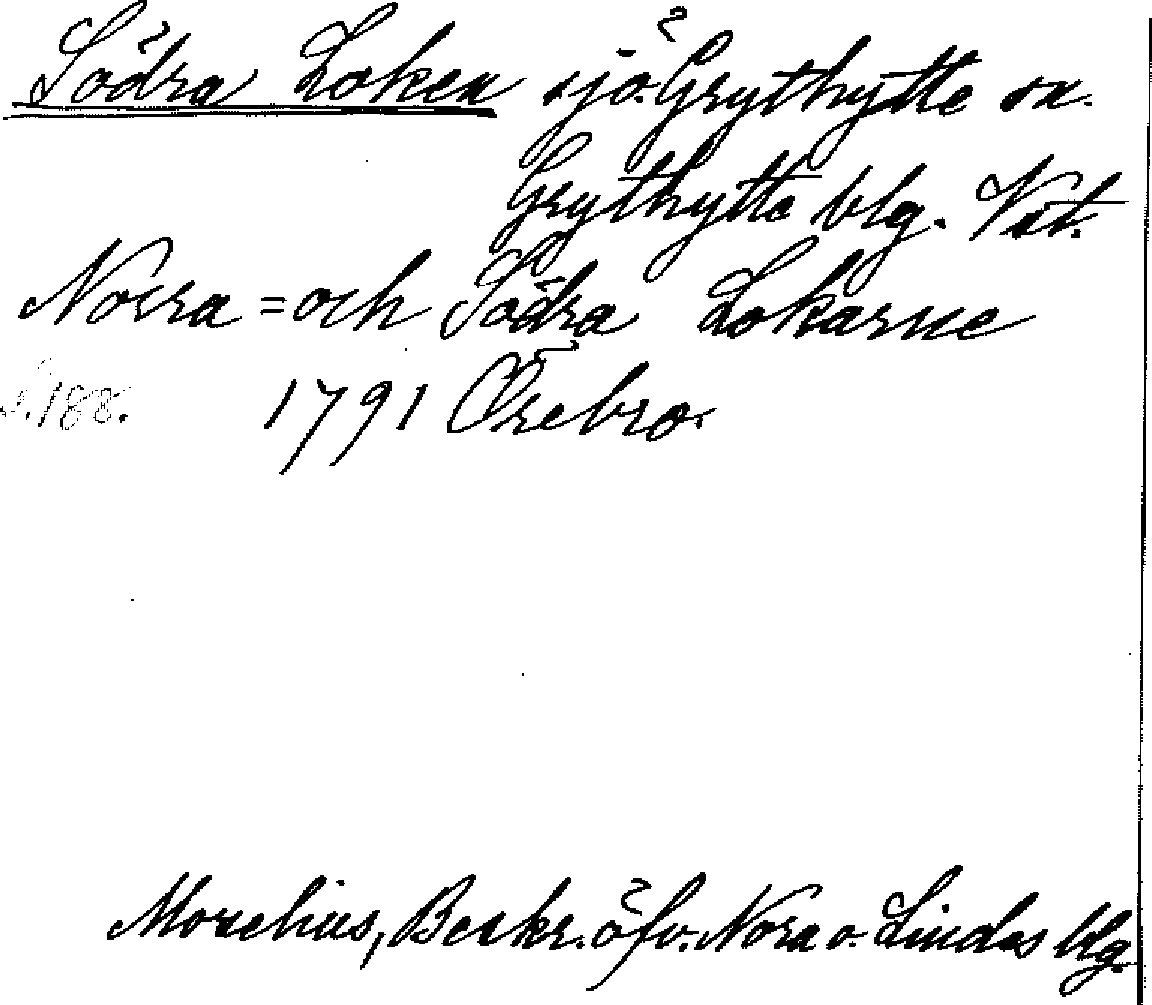 Södra Loken sjö. Grythytte sn.
Grythytte blg. Vstl.
Norra = och Södra Lokarne
s. 188. 1791 Örebro.
Morelius, Beskr. öfv. Nora o. Lindes blg.